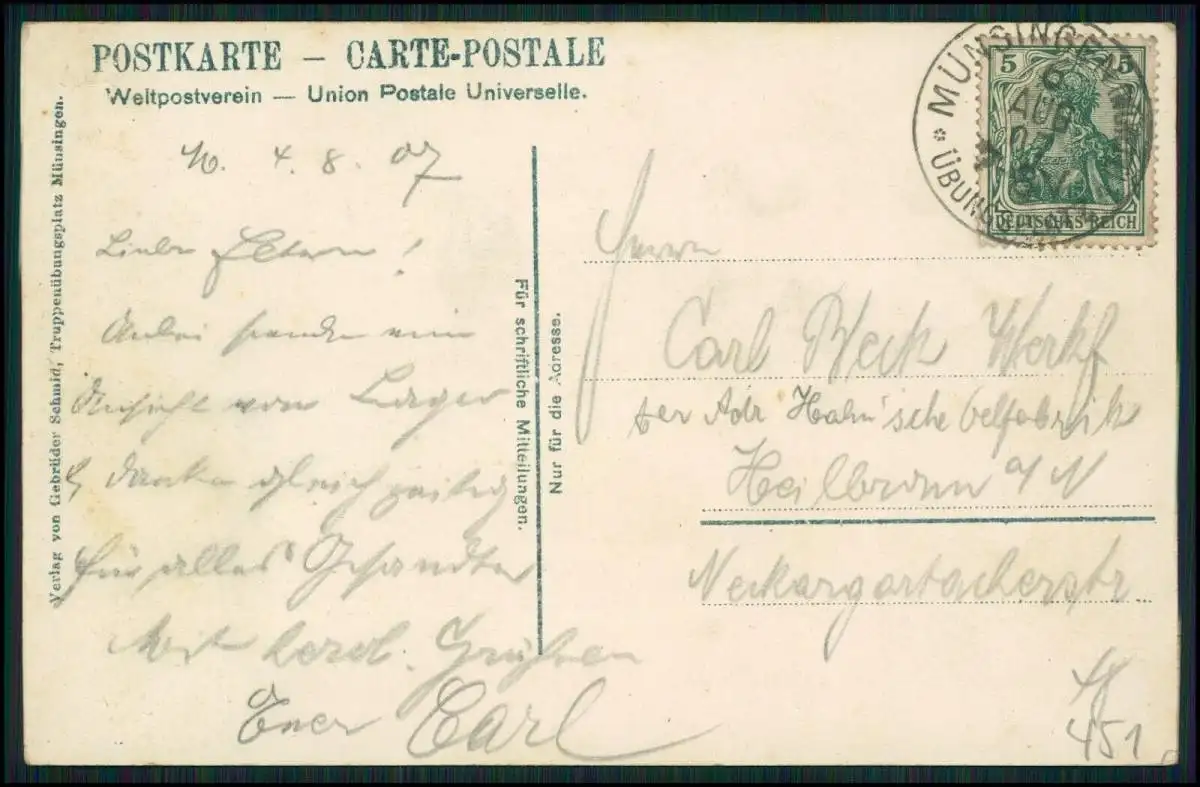 POSTKARTE – CARTE-POSTALE
Weltpostverein — Union Postale Universelle.
Verlag von Gebrüder Schmid, Truppenübungsplatz Münsingen.
M. 4. 8. 07
Liebe Eltern!
Anbei sende eine
Ansicht vom Lager
& danke gleichzeitig
für alles Gesandte
Mit herzl. Grüßen
Euer Carl
Für schriftliche Mitteilungen.
Nur für die Adresse.
MÜNSINGEN
* ÜBUNGS
AUG
07
5 5
DEUTSCHES REICH
Herrn
Carl Beck Werkf
per Adr Hahn'sche Oelfabrik
Heilbronn a/N
Neckargartacherstr
451